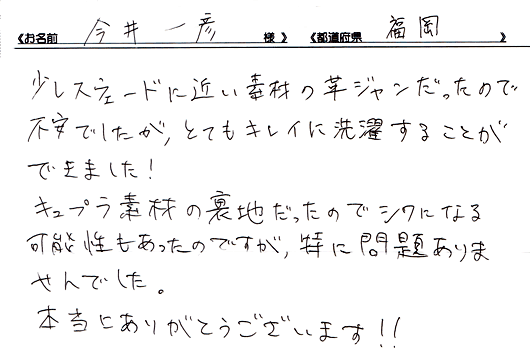 《お名前 今井 一彦 様 》 《都道府県 福岡 》
少しスウェードに近い素材の革ジャンだったので
不安でしたが、とてもキレイに洗濯することが
できました！
キュプラ素材の裏地だったのでシワになる
可能性もあったのですが、特に問題ありま
せんでした。
本当にありがとうございます!!